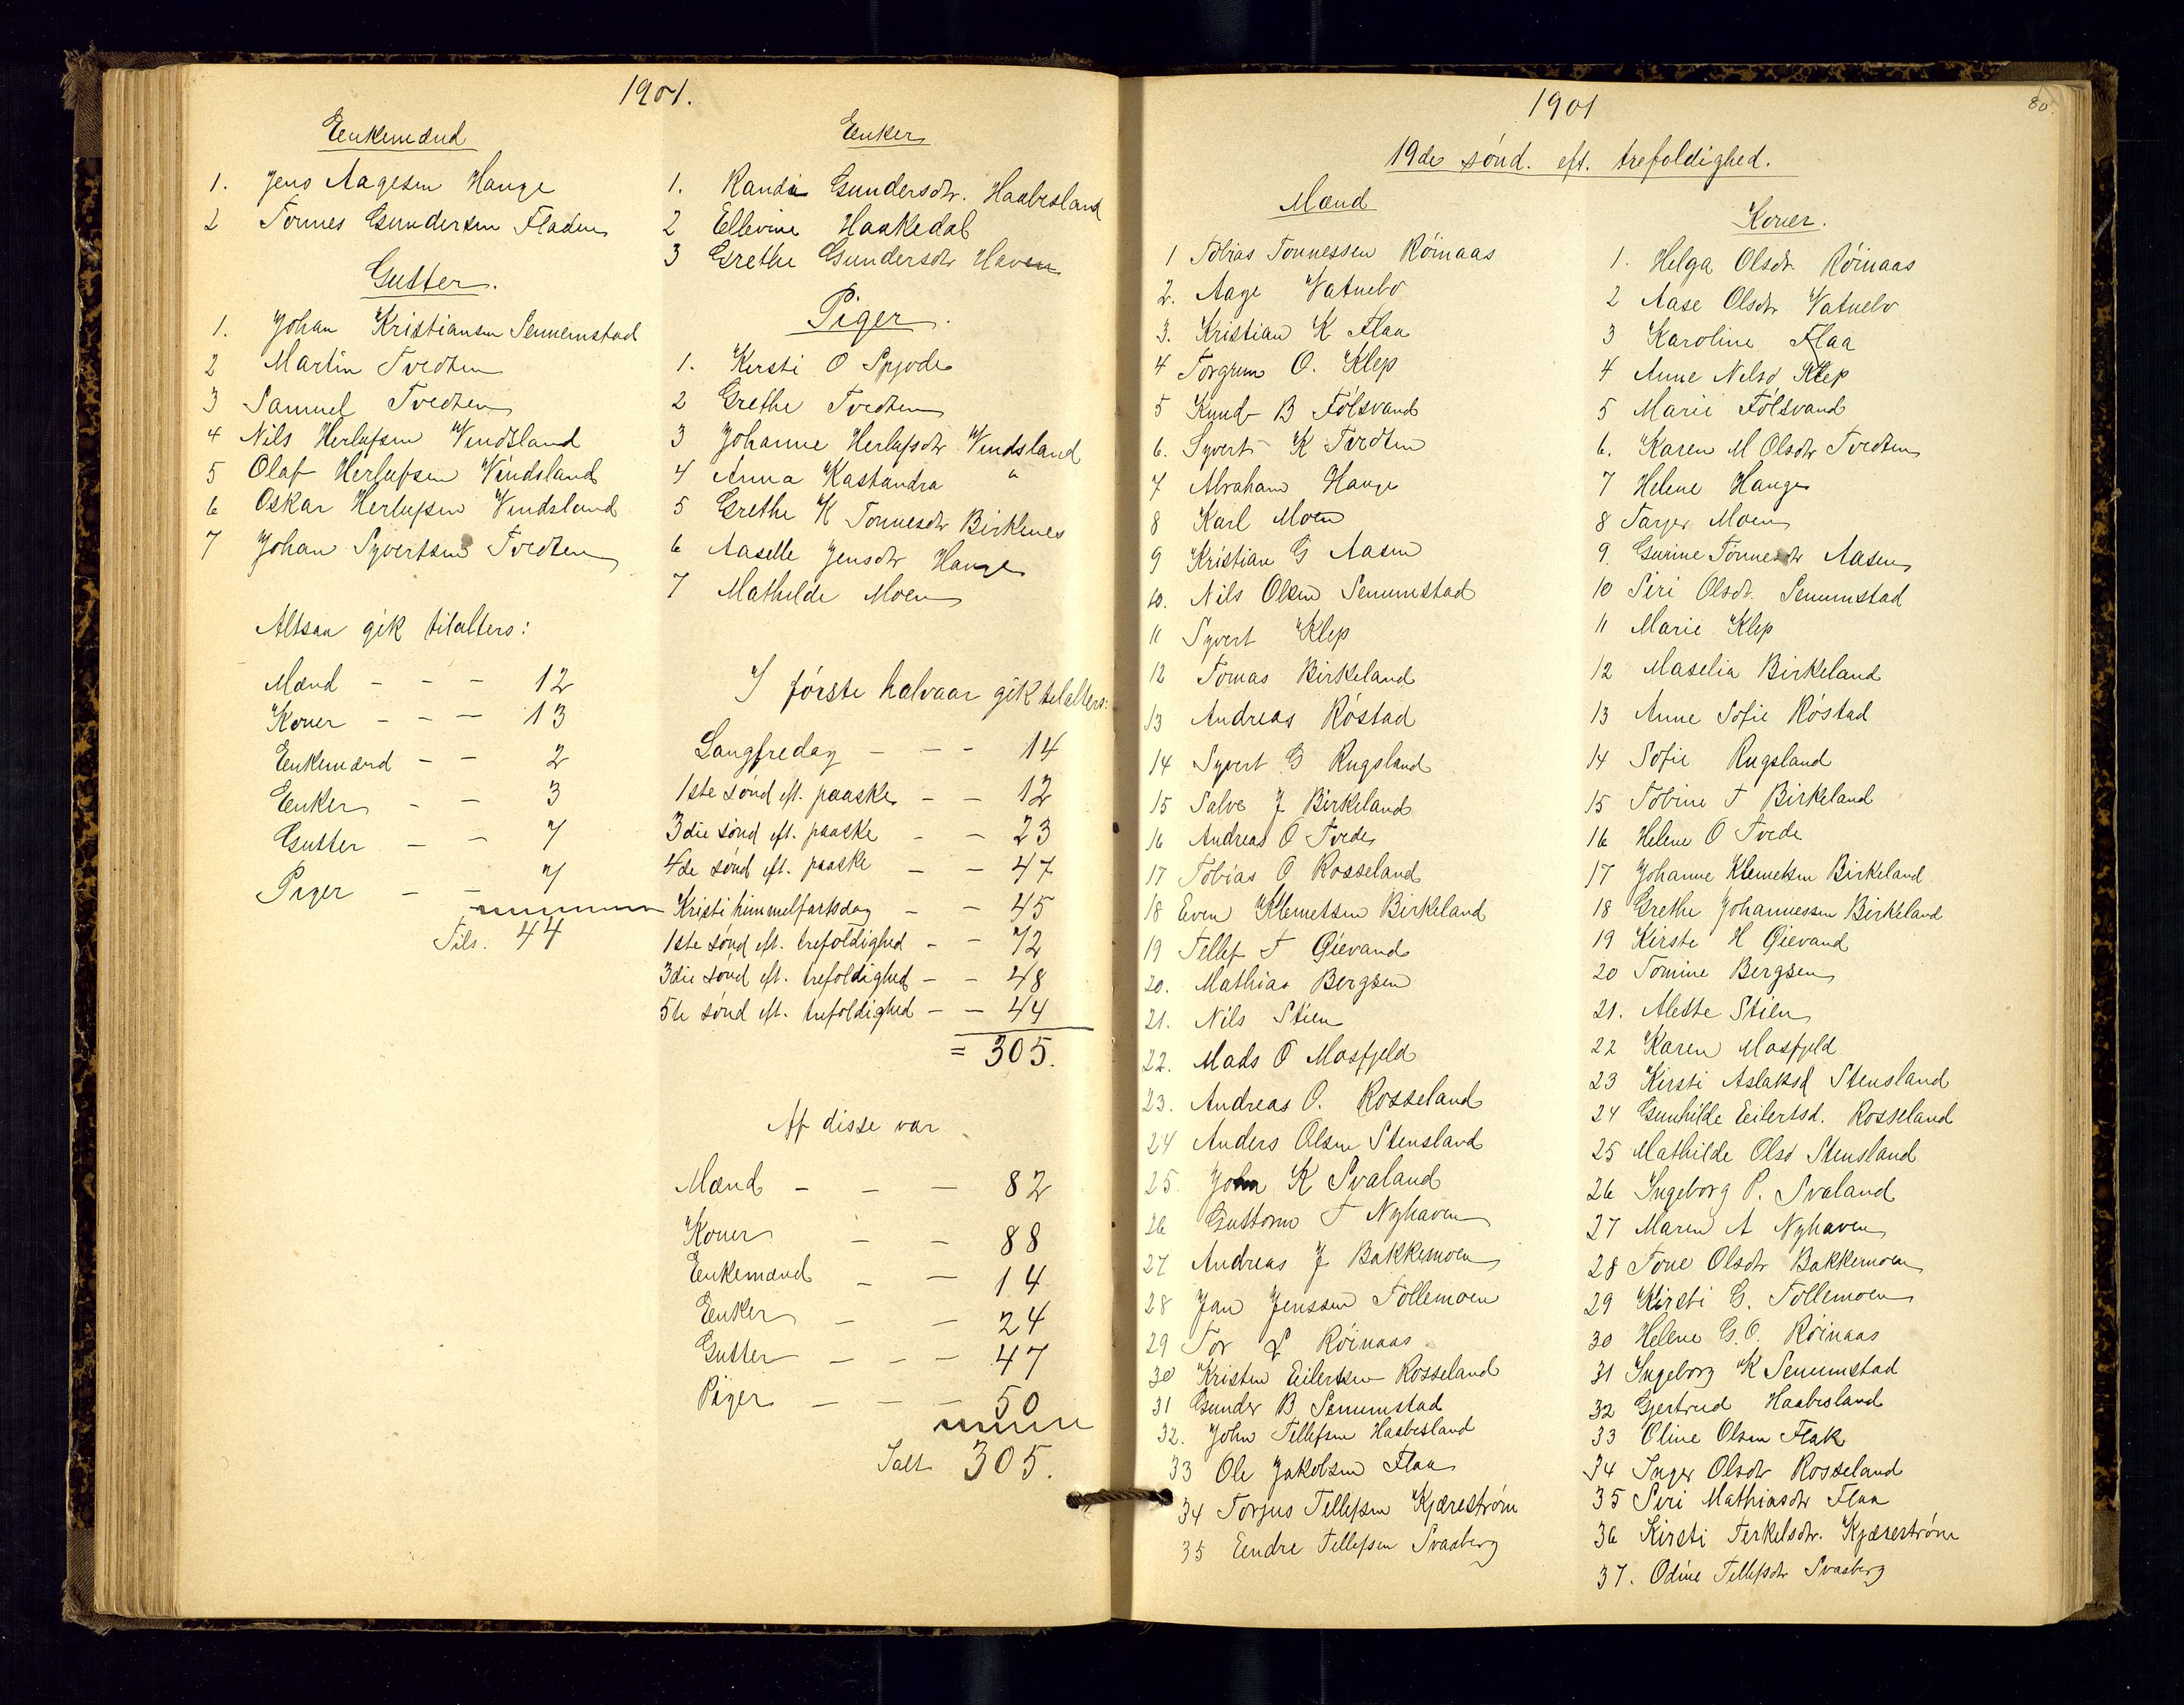 1901.
Enkemænd
1. Jens Aagesen Hauge
2 Tønnes Gundersen Fladen
Gutter.
1. Johan Kristiansen Senumstad
2 Martin Tvedten
3 Samuel Tvedten
4 Nils Herlufsen Vindsland
5 Olaf Herlufsen Vindsland
6 Oskar Herlufsen Vindsland
7 Johan Syvertsen Tvedten
Altsaa gik tilalters:
Mænd - - - 12
Koner - - - 13
Enkemænd - - 2
Enker - - 3
Gutter - - 7
Piger - - 7
Tils. 44
Enker
1. Randi Gundersdtr. Haabesland
2 Ellevine Haakedal
3 Grethe Gundersdtr Haven
Piger.
1. Kersti O Spjode
2 Grethe Tvedten
3 Johanne Herlufsdtr Vindsland
4 Anna Kastandra "
5 Grethe K Tønnesdtr Birkenes
6 Aaselle Jensdtr Hauge
7 Mathilde Moen
I første halvaar gik tilalters:
Langfredag - - - 14
1ste sønd eft. paaske - - 12
3die sønd eft. paaske - - 23
4de sønd eft. paaske - - 47
Kristi himmelfartsdag - - 45
1ste sønd eft. trefoldighed - - 72
3die sønd eft. trefoldighed - - 48
5te sønd eft. trefoldighed - - 44
= 305.
Af disse var
Mænd - - - 82
Koner - - 88
Enkemænd - - 14
Enker - - 24
Gutter - - - 47
Piger - - - 50
Ialt 305.
1901
80.
19de sønd. eft. trefoldighed.
Mænd
1 Tobias Tønnessen Röinaas
2. Aage Vatnebo
3. Kristian K Flaa
4 Torgrim O. Klep
5 Knud B Fölsvand
6. Syvert K Tvedten
7 Abraham Hauge
8 Karl Moen
9 Kristian G Aasen
10. Nils Olsen Senumstad
11 Syvert Klep
12 Tomas Birkeland
13 Andreas Röstad
14 Syvert G Rugsland
15 Salve J Birkeland
16 Andreas O Tvede
17 Tobias O Rosseland
18 Even Klemetsen Birkeland
19 Tellef T Gievand
20. Mathias Bergsen
21. Nils Stien
22. Mads O Mosfjeld
23. Andreas O. Rosseland
24 Anders Olsen Stensland
25. John K Svaland
26 Guttorm T Nyhaven
27 Andreas J Bakkemoen
28 Jan Jenssen Tollemoen
29 Tor L Röinaas
30 Kristen Eilertsen Rosseland
31 Gunder B Senumstad
32. John Tellefsen Haabesland
33 Ole Jakobsen Flaa
34 Torjus Tellefsen Kjærestrøm
35 Endre Tellefsen Svaaberg
Koner.
1. Helga Olsdr. Röinaas
2 Aase Olsdtr Vatnebo
3 Karoline Flaa
4 Anne Nilsd Klep
5 Marie Fölsvand
6. Karen M Olsdtr Tvedten
7 Helene Hauge
8 Tarjer Moen
9. Gurine Tønnesdtr Aasen
10 Siri Olsdt. Senumstad
11 Marie Klep
12 Maselia Birkeland
13 Anne Sofie Röstad
14 Sofie Rugsland
15 Tobine T Birkeland
16 Helene O Tvede
17 Johanne Klemetsen Birkeland
18 Grethe Johannessen Birkeland
19 Kirste H Gievand
20 Tomine Bergsen
21. Alette Stien
22 Karen Mosfjeld
23 Kirsti Aslaksd Stensland
24 Gunhilde Eilertsd. Rosseland
25 Mathilde Olsd Stensland
26 Ingeborg P. Svaland
27 Maren A Nyhaven
28 Tone Olsdtr Bakkemoen
29 Kirsti G. Tollemoen
30 Helene G.O. Röinaas
31 Ingeborg K Senumstad
32 Gjertrud Haabesland
33 Oline Olsen Flak
34 Inger Olsdtr Rosseland
35 Siri Mathiasdtr Flaa
36 Kirsti Terkelsdtr. Kjærestrøm
37. Odine Tellefsdtr Svaaberg